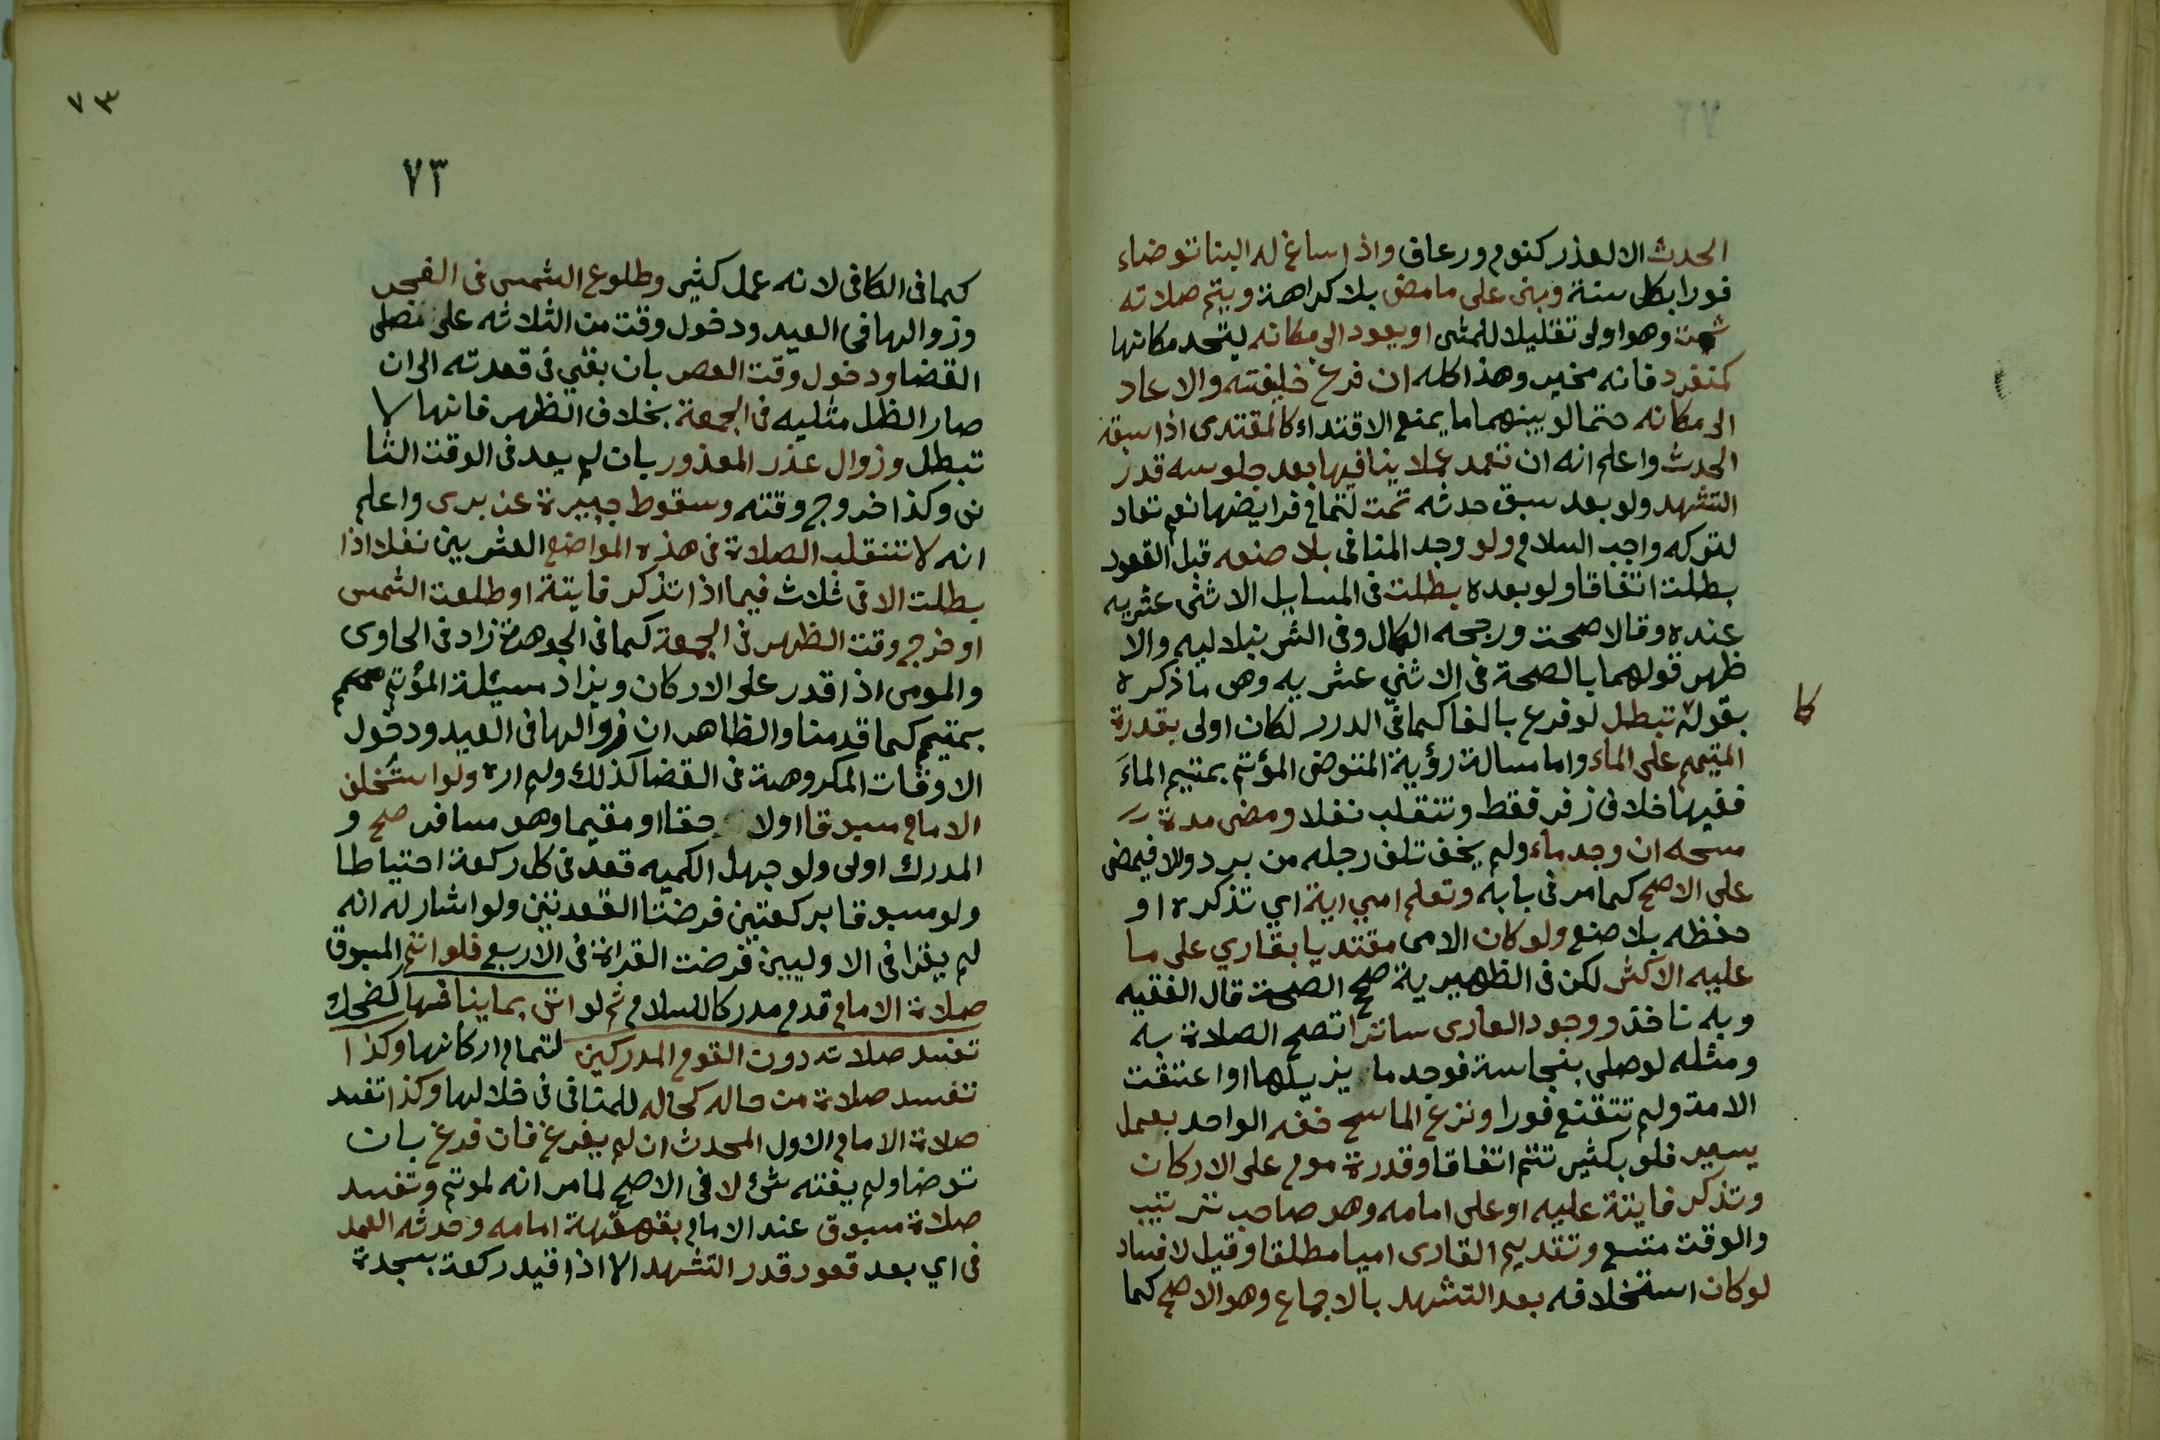 الحدث الا لعذر كنوم ورعاف واذا ساغ له البنا توضاء
فورا بكل سنة وبنى على ما مضى بلا كراهة ويتم صلاته
ثمت وهو اولى تقليلا للمشى او يعود الى مكانه ليتحد مكانها
كمنفرد فانه مخير وهذا كله ان فرغ خليفته والا عاد
الى مكانه حتما لو بينهما ما يمنع الاقتداء كالمقتدى اذا سبقه
الحدث واعلم انه ان تعمد عملا ينافيها بعد جلوسه قدر
التشهد ولو بعد سبق حدثه تمت لتمام فرايضها نعم تعاد
لتركه واجب السلام ولو وجد المنافى بلا صنعه قبل القعود
بطلت اتفاقا ولو بعده بطلت فى المسايل الاثنى عشريه
عنده وقالا صحت ورجحه الكمال وفى الشرنبلاليه والا
ظهر قولهما بالصحة فى الاثني عشريه وهى ما ذكره
بقوله تبطل لو فرع بالفا كما فى الدرر لكان اولى بقدرة
المتيمم على الماء واما مسالة رؤية المتوضى المؤتم بمتيمم الماء
ففيها خلاف زفر فقط وتنقلب نفلا ومضى مدة
مسحه ان وجد ماء ولم يخف تلف رجله من برد والا فيمضى
على الاصح كما مر فى بابه وتعلم امي اية اي تذكره او
حفظه بلا صنع ولو كان الامى مقتديا بقاري على ما
عليه الاكثر لكن فى الظهيرية صحح الصحة قال الفقيه
وبه ناخذ ووجود العارى ساترا تصح الصلاة به
ومثله لو صلى بنجاسة فوجد ما يزيلها او اعتقت
الامة ولم تتقنع فورا ونزع الماسح خفه الواحد بعمل
يسير فلو بكثير تتم اتفاقا وقدرة موم على الاركان
وتذكر فايتة عليه او على امامه وهو صاحب ترتيب
والوقت متسع وتقديم القارى اميا مطلقا وقيل لا فساد
لو كان استخلافه بعد التشهد بالاجماع وهو الاصح كما
كا
٧٣
٧٣
كما فى الكافى لانه عمل كثير وطلوع الشمس فى الفجر
وزوالها فى العيد ودخول وقت من الثلاثه على مصلى
القضا ودخول وقت العصر بان بقي فى قعدته الى ان
صار الظل مثليه فى الجمعة بخلاف الظهر فانها لا
تبطل وزوال عذر المعذور بان لم يعد فى الوقت الثا
نى وكذا خروج وقته وسقوط جبيرة عن برى واعلم
انه لا تنقلب الصلاة فى هذه المواضع العشرين نفلا اذا
بطلت الا فى ثلاث فيما اذا تذكر فايتة او طلعت الشمس
او خرج وقت الظهر فى الجمعة كما فى الجوهرة زاد فى الحاوى
والمومى اذا قدر على الاركان ويزاد مسيئلة المؤتم
بمتيمم كما قدمنا والظاهر ان زوالها فى العيد ودخول
الاوقات المكروهة فى القضا كذلك ولم اره ولو استخلف
الامام مسبوقا او لا حقا او مقيما وهو مسافر صح و
المدرك اولى ولو جهل الكميه قعد فى كل ركعة احتياطا
ولو مسبوقا بركعتين فرضتا القعدتين ولو اشار له انه
لم يقرا فى الاوليين فرضت القراة فى الاربع فلو اتم المسبوق
صلاة الامام قدم مدركا للسلام ثم لو اتى بما ينافيها كضحك
تفسد صلاته دون القوم المدركين لتمام اركانها وكذا
تفسد صلاة من حاله كحاله للمنافى فى خلالها وكذا تفسد
صلاة الامام الاول المحدث ان لم يفرغ فان فرغ بان
توضا ولم يفته شئ لا فى الاصح لما مر انه لموتم وتفسد
صلاة مسبوق عند الامام بقهقهة امامه وحدثه العمد
فى اي بعد قعود قدر التشهد الا اذا قيد ركعة بسجدة